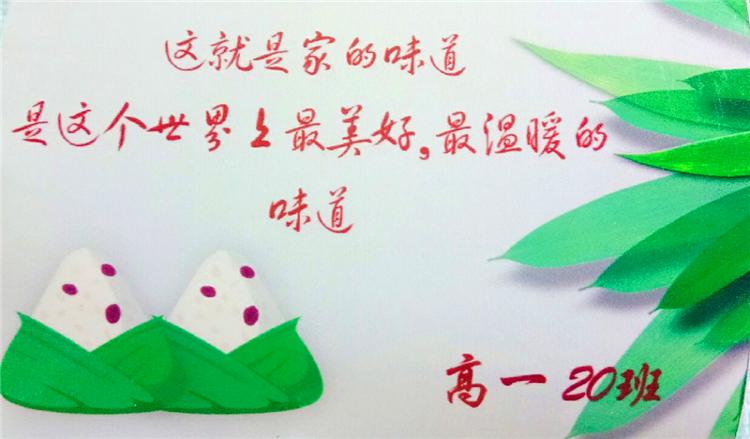 这就是家的味道
是这个世界上最美好,最温暖的
味道
高一20班